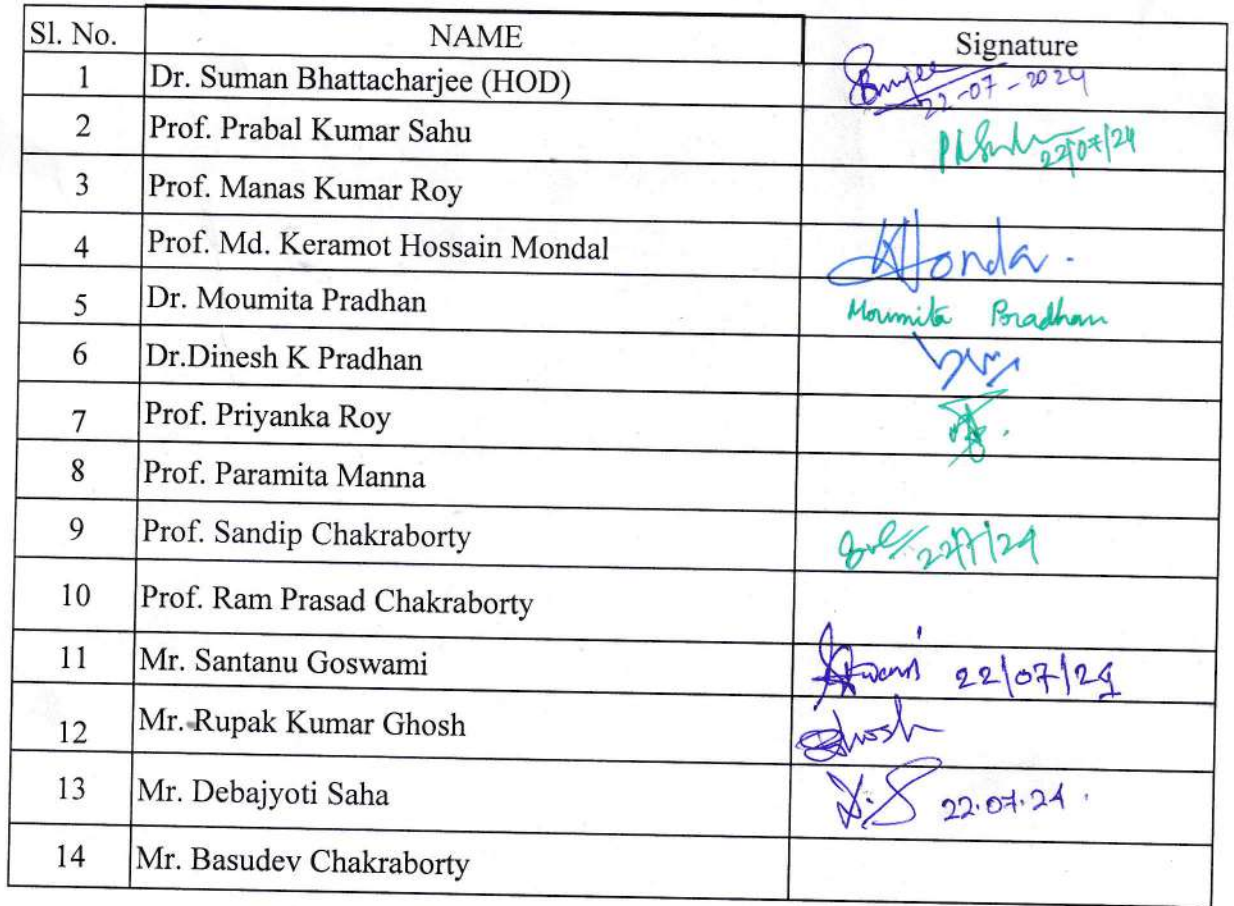 Sl. No. NAME Signature
1 Dr. Suman Bhattacharjee (HOD) 22-07-2024
2 Prof. Prabal Kumar Sahu 22/07/24
3 Prof. Manas Kumar Roy
4 Prof. Md. Keramot Hossain Mondal
5 Dr. Moumita Pradhan Moumita Pradhan
6 Dr.Dinesh K Pradhan
7 Prof. Priyanka Roy
8 Prof. Paramita Manna
9 Prof. Sandip Chakraborty 22/7/24
10 Prof. Ram Prasad Chakraborty
11 Mr. Santanu Goswami 22/07/24
12 Mr. Rupak Kumar Ghosh Ghosh
13 Mr. Debajyoti Saha D.S 22.07.24.
14 Mr. Basudev Chakraborty